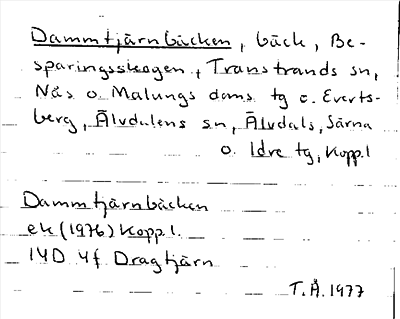 Dammtjärnbäcken, bäck, Be-
sparingsskogen, Transtrands sn,
Nås o. Malungs doms tg o. Everts-
berg, Älvdalens sn, Älvdals, Särna
o. Idre tg, Kopp.l
Dammtjärnbäcken
ek (1976) Kopp.l.
14D 4f Dragtjärn
T.Å. 1977